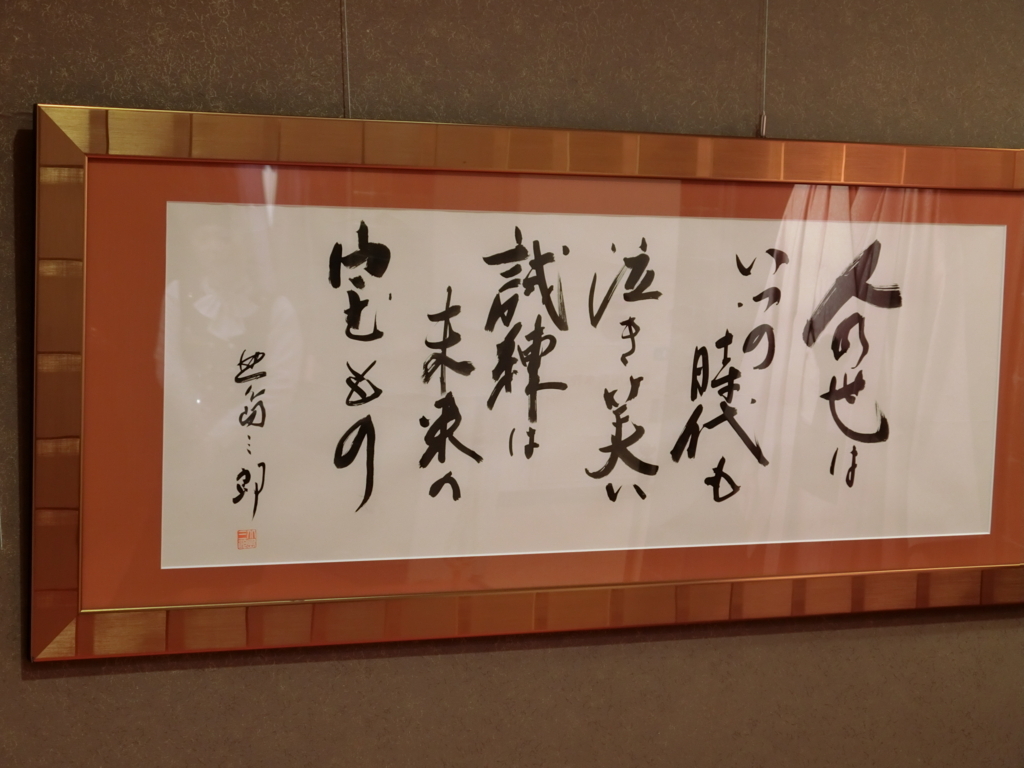 人の世は
いつの
時代も
泣き笑い
試練は
未来の
宝もの